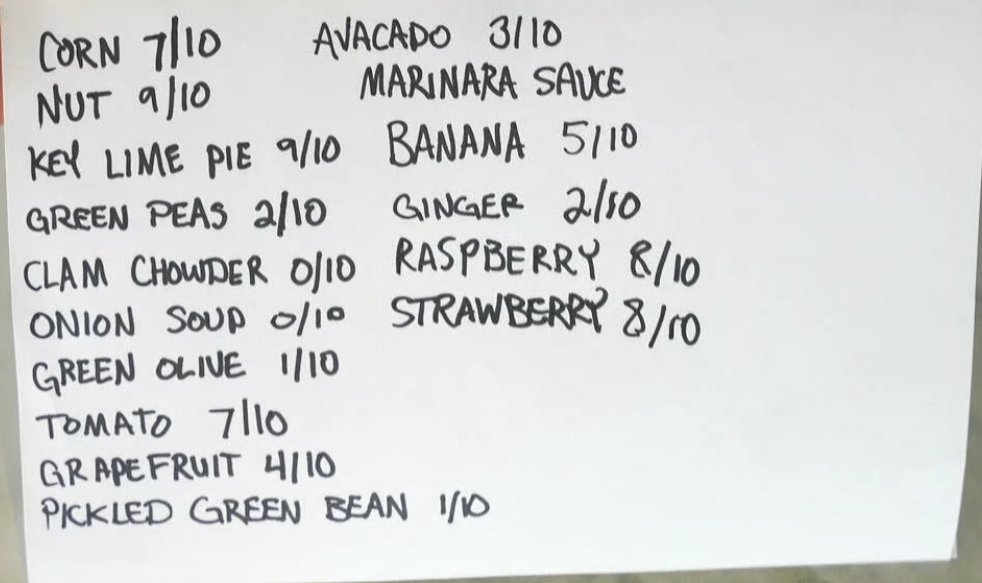 CORN 7/10
NUT 9/10
KEY LIME PIE 9/10
GREEN PEAS 2/10
CLAM CHOWDER 0/10
ONION SOUP 0/10
GREEN OLIVE 1/10
TOMATO 7/10
GRAPEFRUIT 4/10
PICKLED GREEN BEAN 1/10
AVACADO 3/10
MARINARA SAUCE
BANANA 5/10
GINGER 2/10
RASPBERRY 8/10
STRAWBERRY 8/10